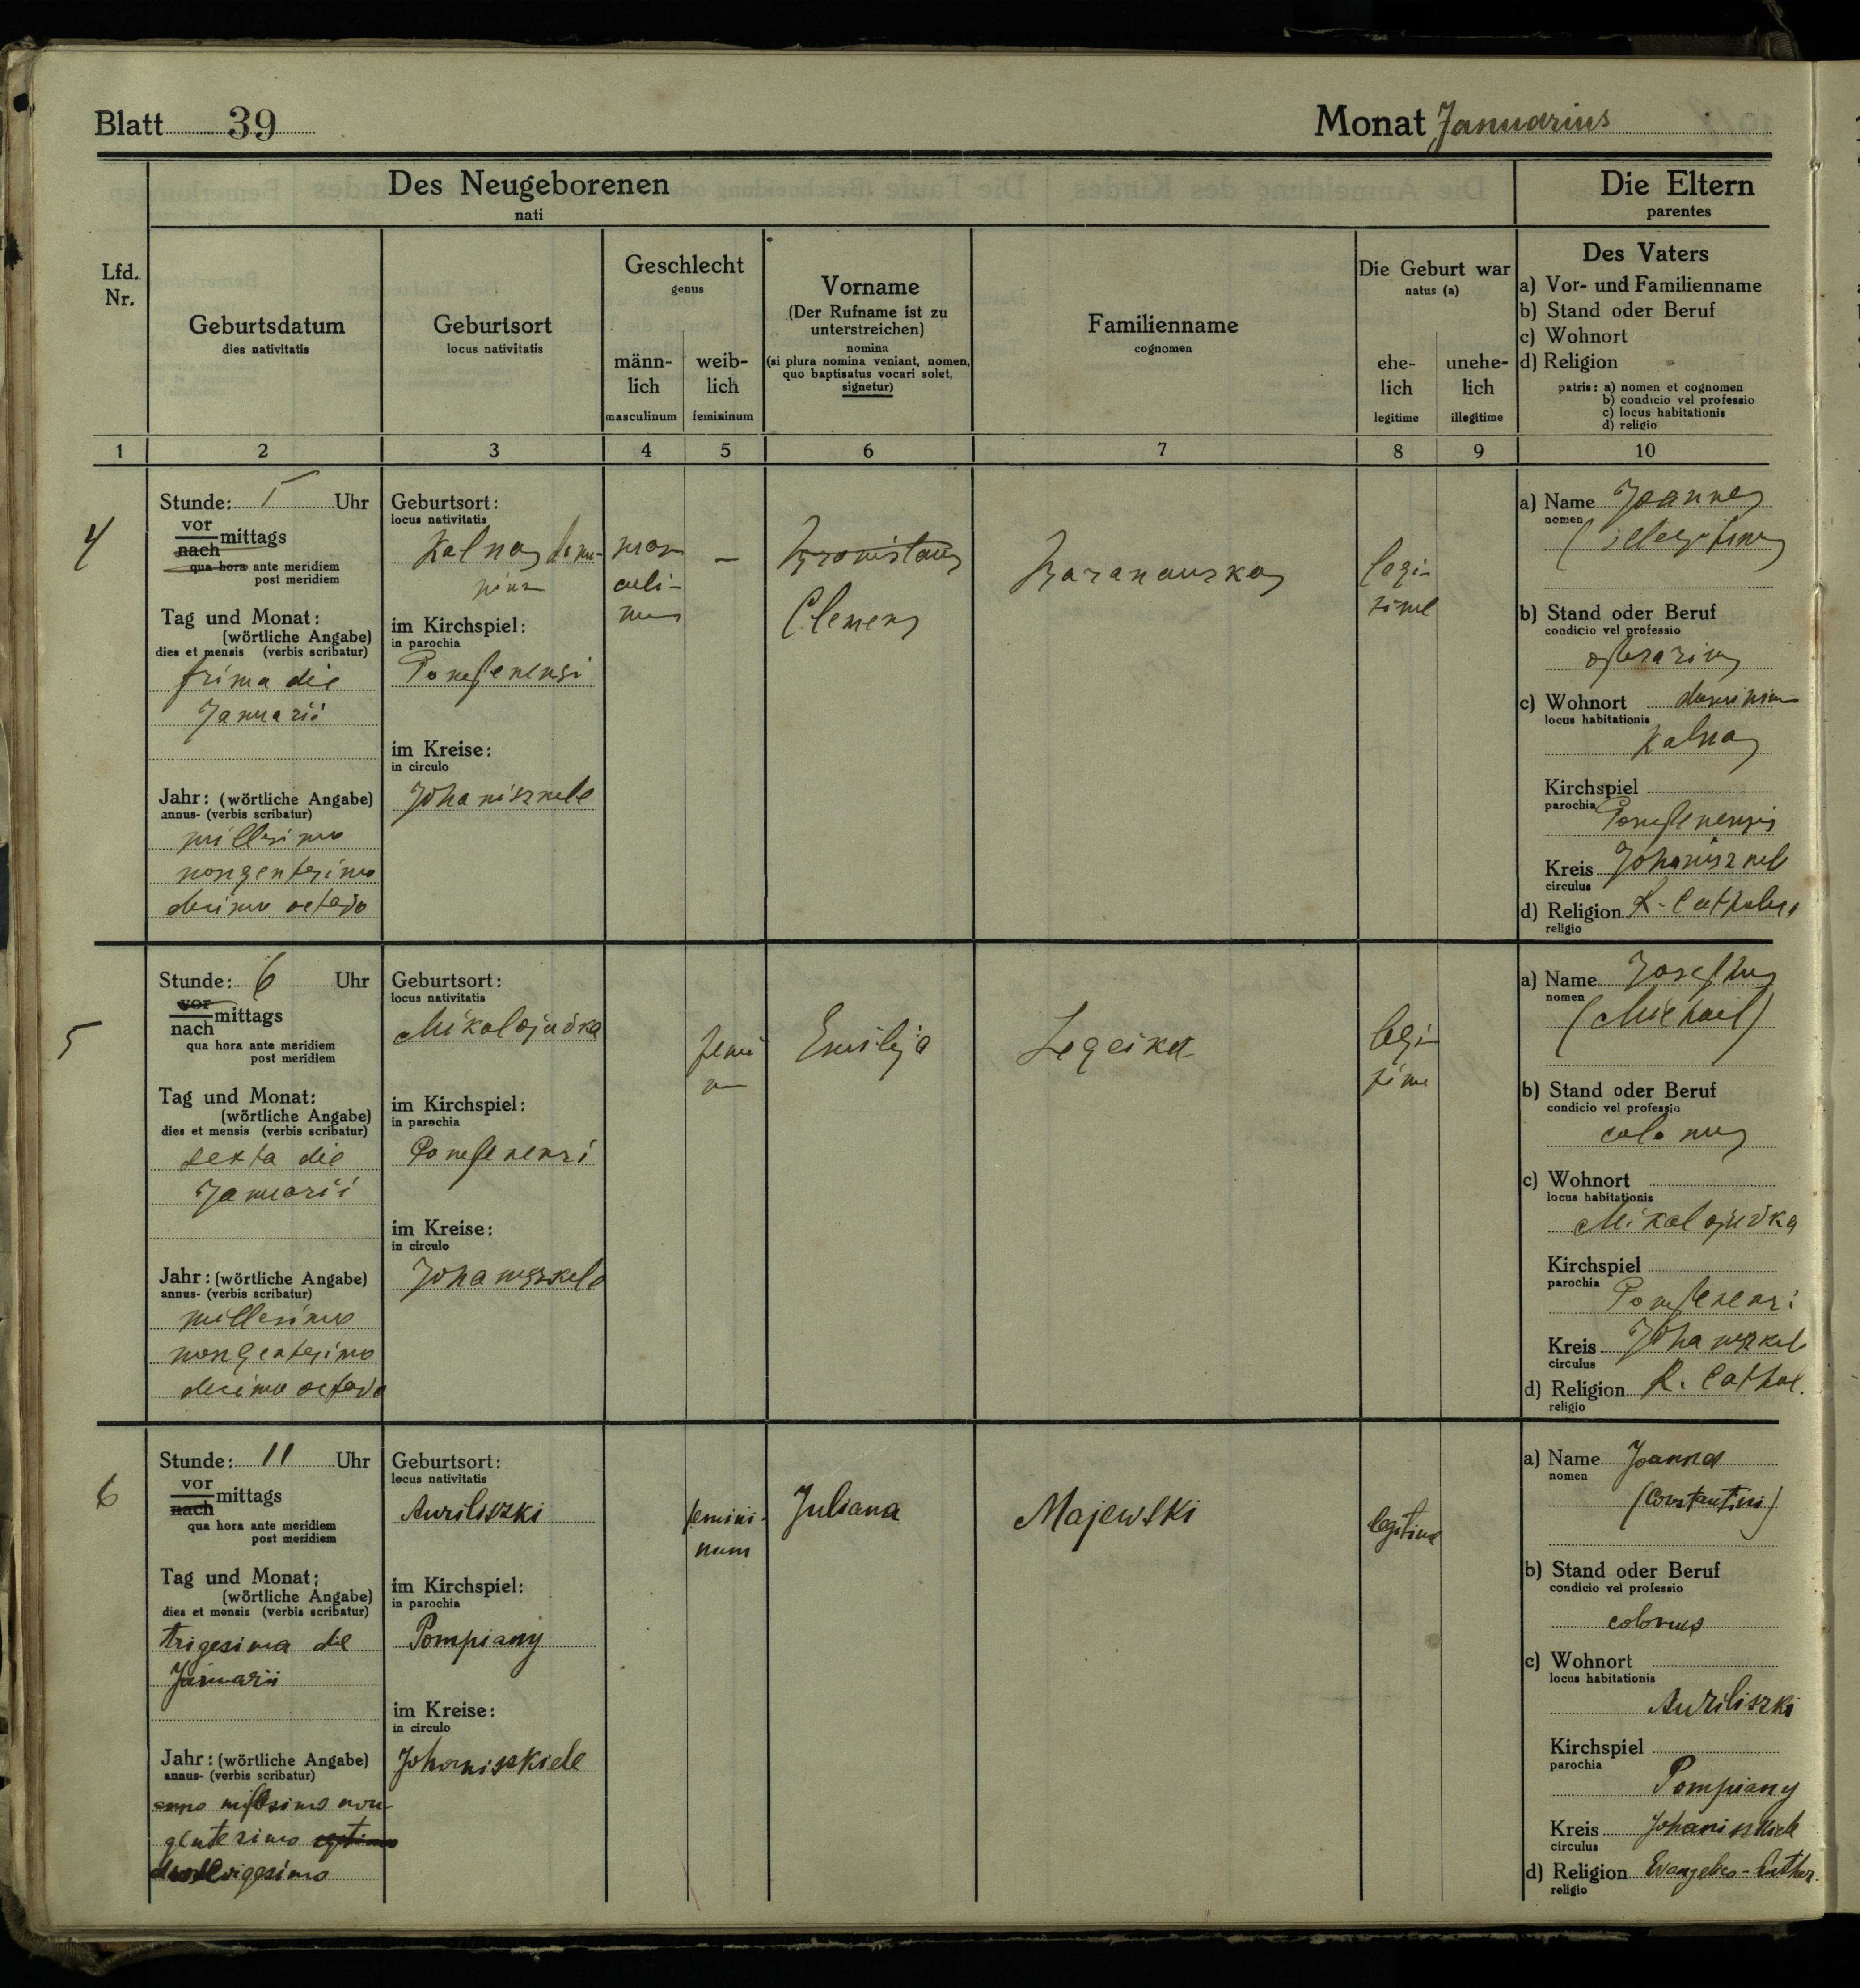 Blatt 39
Monat Januarius
Des Neugeborenen
nati
Die Eltern
parentes
Lfd.
Nr.
Geburtsdatum
dies nativitatis
Geburtsort
locus nativitatis
Geschlecht
genus
männ-
lich
masculinum
weib-
lich
femininum
Vorname
(Der Rufname ist zu
unterstreichen)
nomina
(si plura nomina veniant, nomen,
quo baptisatus vocari solet,
signetur)
Familienname
cognomen
Die Geburt war
natus (a)
ehe-
lich
legitime
unehe-
lich
illegitime
Des Vaters
a) Vor- und Familienname
b) Stand oder Beruf
c) Wohnort
d) Religion
patris: a) nomen et cognomen
b) condicio vel professio
c) locus habitationis
d) religio
1 2 3 4 5 6 7 8 9 10
4
Stunde: Uhr
vor
nach mittags
qua hora ante meridiem
post meridiem
Tag und Monat:
(wörtliche Angabe)
dies et mensis (verbis scribatur)
prima die
Januarii
Jahr: (wörtliche Angabe)
annus- (verbis scribatur)
millesimo
nongentesimo
decimo octavo
Geburtsort:
locus nativitatis
Kalnas
im Kirchspiel:
in parochia
Pompenensi
im Kreise:
in circulo
Johaniszkele
mas
culi-
nus
–
Bronislaus
Clemens
Baranauskas
legi-
time
a) Name Joannes
nomen
b) Stand oder Beruf
condicio vel professio
operarius
c) Wohnort dominium
locus habitationis
Kalnas
Kirchspiel
parochia Pompenensis
Kreis Johaniszkele
circulus
d) Religion R. Catholic
religio
5
Stunde: 6 Uhr
vor
nach mittags
qua hora ante meridiem
post meridiem
Tag und Monat:
(wörtliche Angabe)
dies et mensis (verbis scribatur)
sexta die
Januarii
Jahr: (wörtliche Angabe)
annus- (verbis scribatur)
millesimo
nongentesimo
decimo octavo
Geburtsort:
locus nativitatis
Mikolajuvka
im Kirchspiel:
in parochia
Pompenensi
im Kreise:
in circulo
Johaniszkele
femi
n
Emilija
Legeika
legi-
time
a) Name Josephus
nomen
(Michael)
b) Stand oder Beruf
condicio vel professio
colonus
c) Wohnort
locus habitationis
Mikolajuvka
Kirchspiel
parochia
Pompenensi
Kreis Johaniszkel
circulus
d) Religion R. Cathol.
religio
6
Stunde: 11 Uhr
vor
nach mittags
qua hora ante meridiem
post meridiem
Tag und Monat:
(wörtliche Angabe)
dies et mensis (verbis scribatur)
trigesima die
Januarii
Jahr: (wörtliche Angabe)
annus- (verbis scribatur)
anno millesimo non-
gentesimo septimo
duodevigesimo
Geburtsort:
locus nativitatis
Auriliszki
im Kirchspiel:
in parochia
Pompiany
im Kreise:
in circulo
Johaniszkiele
femini-
num
Juliana
Majewski
legitime
a) Name Joannes
nomen
(Constantini)
b) Stand oder Beruf
condicio vel professio
colonus
c) Wohnort
locus habitationis
Auriliszki
Kirchspiel
parochia
Pompiany
Kreis Johaniszkiele
circulus
d) Religion Evangelico-Luther.
religio